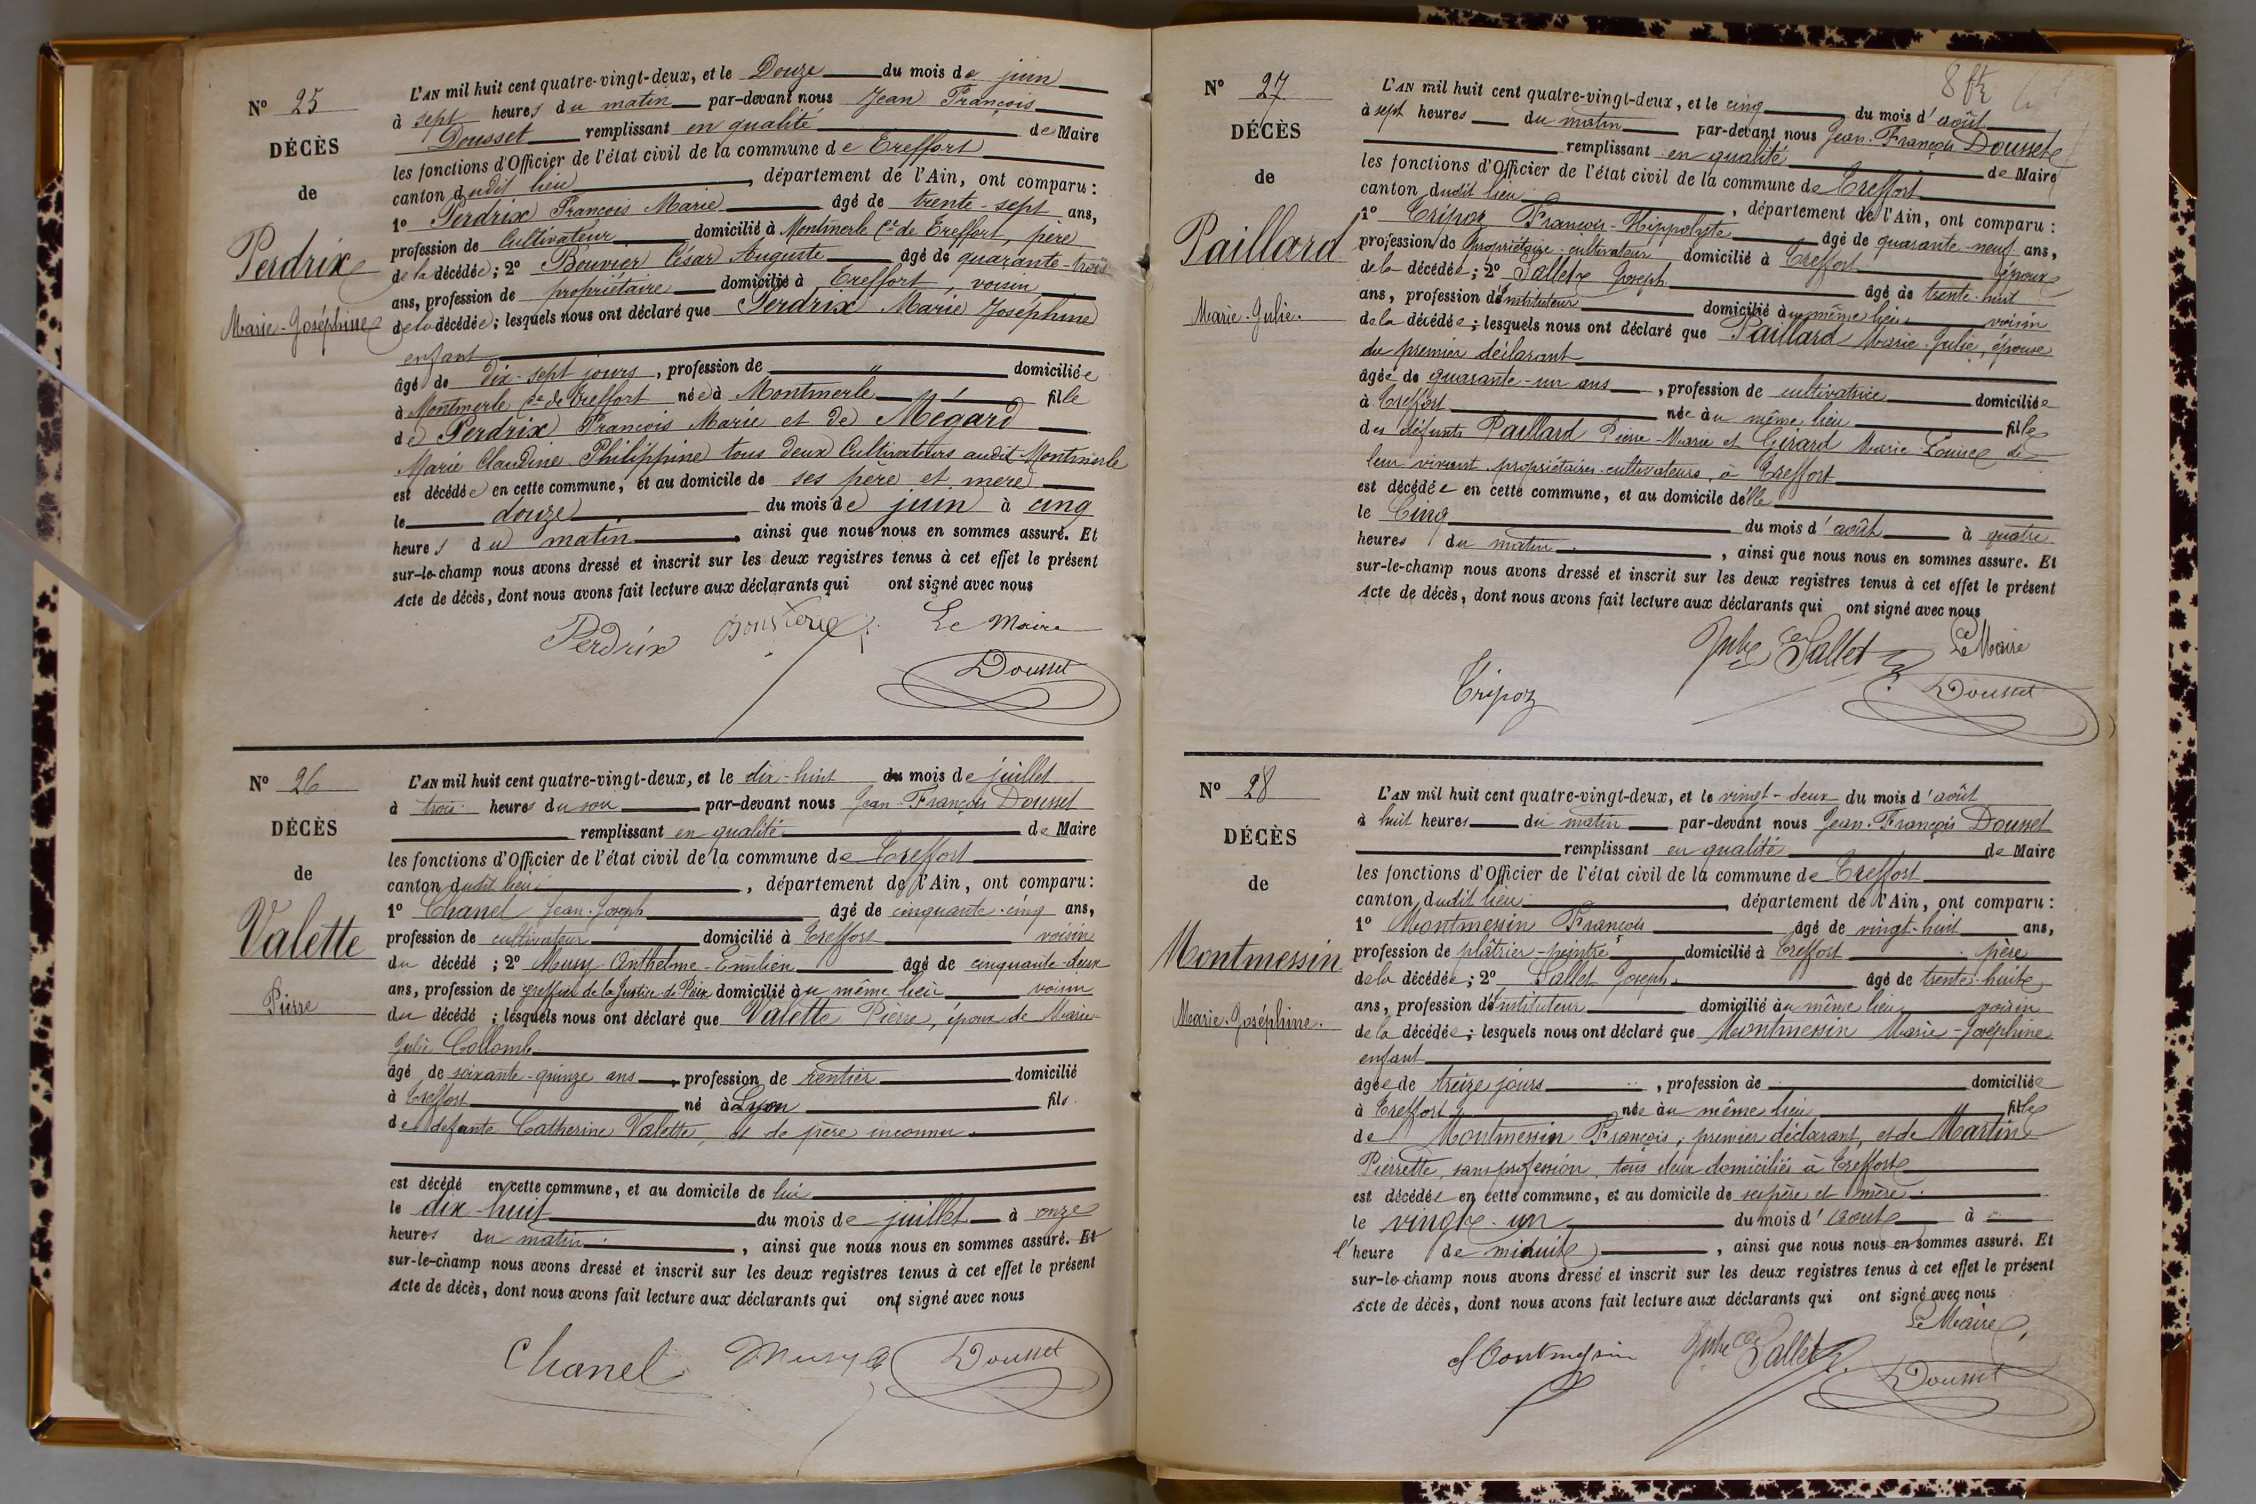 N° 25
DÉCÈS
de
Perdrix
Marie-Joséphine
L'AN mil huit cent quatre-vingt-deux, et le Douze du mois de juin
à sept heures du matin par-devant nous Jean François
Dousset remplissant en qualité de Maire
les fonctions d'Officier de l'état civil de la commune de Treffort
canton dudit lieu, département de l'Ain, ont comparu :
1° Perdrix François Marie âgé de trente-sept ans,
profession de Cultivateur domicilié à Montmerle Cne de Treffort, père
de la décédée ; 2° Bouvier César Auguste âgé de quarante-trois
ans, profession de propriétaire domicilié à Treffort, voisin
de la décédée ; lesquels nous ont déclaré que Perdrix Marie Joséphine
enfant
âgé de dix-sept jours, profession de " domiciliée
à Montmerle Cne de Treffort née à Montmerle fille
de Perdrix François Marie et de Mégard
Marie Claudine Philippine tous deux Cultivateurs audit Montmerle
est décédée en cette commune, et au domicile de ses père et mère
le douze du mois de juin à cinq
heures du matin, ainsi que nous nous en sommes assuré. Et
sur-le-champ nous avons dressé et inscrit sur les deux registres tenus à cet effet le présent
Acte de décès, dont nous avons fait lecture aux déclarants qui ont signé avec nous
Perdrix Le Maire
Dousset
N° 26
DÉCÈS
de
Valette
Pierre
L'AN mil huit cent quatre-vingt-deux, et le dix-huit du mois de juillet
à trois heures du soir par-devant nous Jean-François Dousset
remplissant en qualité de Maire
les fonctions d'Officier de l'état civil de la commune de Treffort
canton dudit lieu, département de l'Ain, ont comparu :
1° Chanel Jean-Joseph âgé de cinquante-cinq ans,
profession de cultivateur domicilié à Treffort voisin
du décédé ; 2° Musy Anthelme-Emilien âgé de cinquante-deux
ans, profession de greffier de la Justice de Paix domicilié au même lieu voisin
du décédé ; lesquels nous ont déclaré que Valette Pierre, époux de Marie-
Julie Collomb
âgé de soixante-quinze ans, profession de rentier domicilié
à Treffort né à Lyon fils
de défunte Catherine Valette, et de père inconnu.
est décédé en cette commune, et au domicile de lui
le dix-huit du mois de juillet à onze
heures du matin, ainsi que nous nous en sommes assuré. Et
sur-le-champ nous avons dressé et inscrit sur les deux registres tenus à cet effet le présent
Acte de décès, dont nous avons fait lecture aux déclarants qui ont signé avec nous
Chanel Musy Dousset
N° 27
DÉCÈS
de
Paillard
Marie-Julie.
L'AN mil huit cent quatre-vingt-deux, et le cinq du mois d'août
à sept heures du matin par-devant nous Jean-François Dousset
remplissant en qualité de Maire
les fonctions d'Officier de l'état civil de la commune de Treffort
canton dudit lieu, département de l'Ain, ont comparu :
1° Tripoz François-Hippolyte âgé de quarante-neuf ans,
profession de propriétaire-cultivateur domicilié à Treffort époux
de la décédée ; 2° Sallet Joseph âgé de trente-huit
ans, profession d'instituteur domicilié au même lieu voisin
de la décédée ; lesquels nous ont déclaré que Paillard Marie-Julie, épouse
du premier déclarant
âgée de quarante-un ans, profession de cultivatrice domiciliée
à Treffort née au même lieu fille
des défunts Paillard Pierre-Marie et Girard Marie Louise de
leur vivant propriétaires-cultivateurs à Treffort
est décédée en cette commune, et au domicile d'elle
le Cinq du mois d'août à quatre
heures du matin, ainsi que nous nous en sommes assuré. Et
sur-le-champ nous avons dressé et inscrit sur les deux registres tenus à cet effet le présent
Acte de décès, dont nous avons fait lecture aux déclarants qui ont signé avec nous
Sallet Le Maire
Tripoz Dousset
N° 28
DÉCÈS
de
Montmessin
Marie-Joséphine.
L'AN mil huit cent quatre-vingt-deux, et le vingt-deux du mois d'août
à huit heures du matin par-devant nous Jean-François Dousset
remplissant en qualité de Maire
les fonctions d'Officier de l'état civil de la commune de Treffort
canton dudit lieu, département de l'Ain, ont comparu :
1° Montmessin François âgé de vingt-huit ans,
profession de plâtrier-peintre domicilié à Treffort père
de la décédée ; 2° Sallet Joseph âgé de trente-huit
ans, profession d'instituteur domicilié au même lieu voisin
de la décédée ; lesquels nous ont déclaré que Montmessin Marie-Joséphine
enfant
âgée de treize jours, profession de domiciliée
à Treffort née au même lieu fille
de Montmessin François, premier déclarant, et de Martin
Pierrette, sans profession, tous deux domiciliés à Treffort
est décédée en cette commune, et au domicile de ses père et mère
le vingt-un du mois d'août à
l'heure de minuit, ainsi que nous nous en sommes assuré. Et
sur-le-champ nous avons dressé et inscrit sur les deux registres tenus à cet effet le présent
Acte de décès, dont nous avons fait lecture aux déclarants qui ont signé avec nous
Le Maire
Montmessin Sallet
Dousset